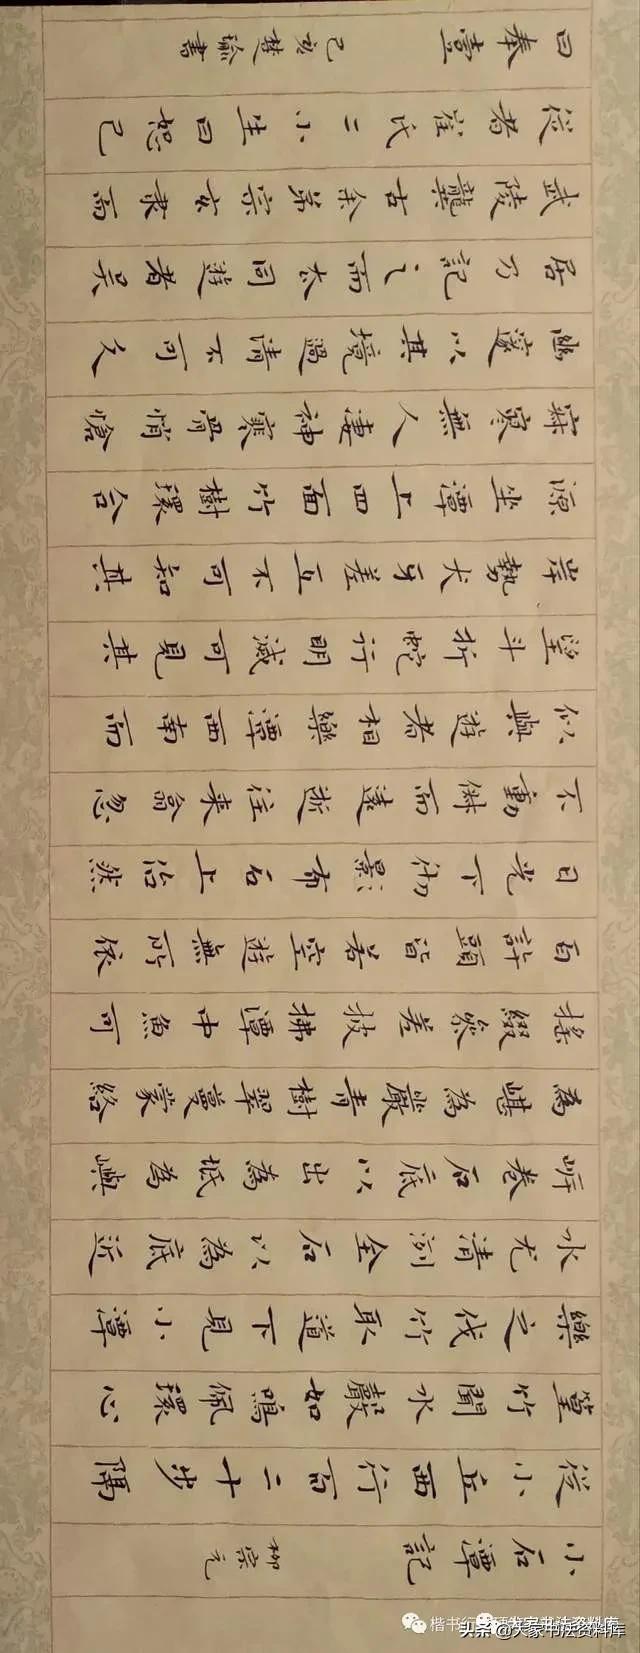 小石潭記 柳宗元
從小丘西行百二十步隔
篁竹聞水聲如鳴佩環心
樂之伐竹取道下見小潭
水尤清洌全石以為底近
岸卷石底以出為坻為嶼
為嵁為巖青樹翠蔓蒙絡
搖綴參差披拂潭中魚可
百許頭皆若空遊無所依
日光下彻影布石上佁然
不動俶而遠逝往來翕忽
似與遊者相樂潭西南而
望斗折蛇行明滅可見其
岸勢犬牙差互不可知其
源坐潭上四面竹樹環合
寂寥無人凄神寒骨悄愴
幽邃以其境過清不可久
居乃記之而去同遊者吳
武陵龔古余弟宗玄隸而
從者崔氏二小生曰恕己
曰奉壹 己亥楚瑜書
楷书行
头条@大家书法资料库